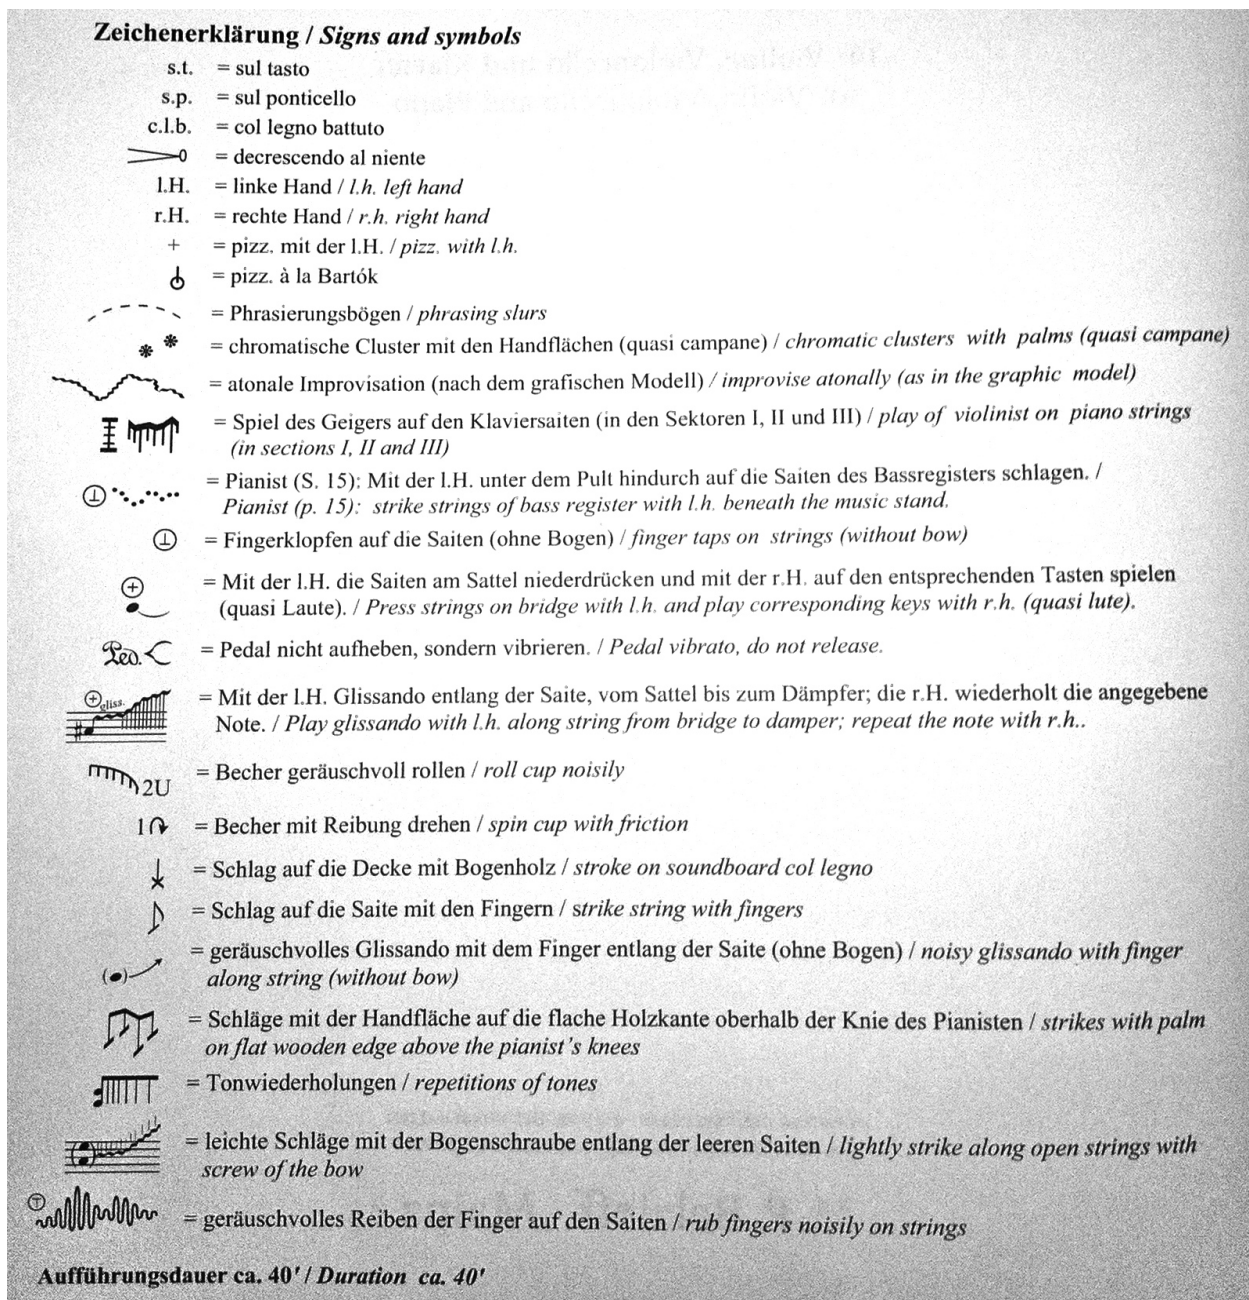 Zeichenerklärung / Signs and symbols
s.t. = sul tasto
s.p. = sul ponticello
c.l.b. = col legno battuto
= decrescendo al niente
l.H. = linke Hand / l.h. left hand
r.H. = rechte Hand / r.h. right hand
+ = pizz. mit der l.H. / pizz. with l.h.
= pizz. à la Bartók
= Phrasierungsbögen / phrasing slurs
= chromatische Cluster mit den Handflächen (quasi campane) / chromatic clusters with palms (quasi campane)
= atonale Improvisation (nach dem grafischen Modell) / improvise atonally (as in the graphic model)
= Spiel des Geigers auf den Klaviersaiten (in den Sektoren I, II und III) / play of violinist on piano strings
(in sections I, II and III)
= Pianist (S. 15): Mit der l.H. unter dem Pult hindurch auf die Saiten des Bassregisters schlagen. /
Pianist (p. 15): strike strings of bass register with l.h. beneath the music stand.
= Fingerklopfen auf die Saiten (ohne Bogen) / finger taps on strings (without bow)
= Mit der l.H. die Saiten am Sattel niederdrücken und mit der r.H. auf den entsprechenden Tasten spielen
(quasi Laute). / Press strings on bridge with l.h. and play corresponding keys with r.h. (quasi lute).
Ped. = Pedal nicht aufheben, sondern vibrieren. / Pedal vibrato, do not release.
gliss. = Mit der l.H. Glissando entlang der Saite, vom Sattel bis zum Dämpfer; die r.H. wiederholt die angegebene
Note. / Play glissando with l.h. along string from bridge to damper; repeat the note with r.h..
2U = Becher geräuschvoll rollen / roll cup noisily
1 = Becher mit Reibung drehen / spin cup with friction
= Schlag auf die Decke mit Bogenholz / stroke on soundboard col legno
= Schlag auf die Saite mit den Fingern / strike string with fingers
= geräuschvolles Glissando mit dem Finger entlang der Saite (ohne Bogen) / noisy glissando with finger
along string (without bow)
= Schläge mit der Handfläche auf die flache Holzkante oberhalb der Knie des Pianisten / strikes with palm
on flat wooden edge above the pianist's knees
= Tonwiederholungen / repetitions of tones
= leichte Schläge mit der Bogenschraube entlang der leeren Saiten / lightly strike along open strings with
screw of the bow
= geräuschvolles Reiben der Finger auf den Saiten / rub fingers noisily on strings
Aufführungsdauer ca. 40' / Duration ca. 40'